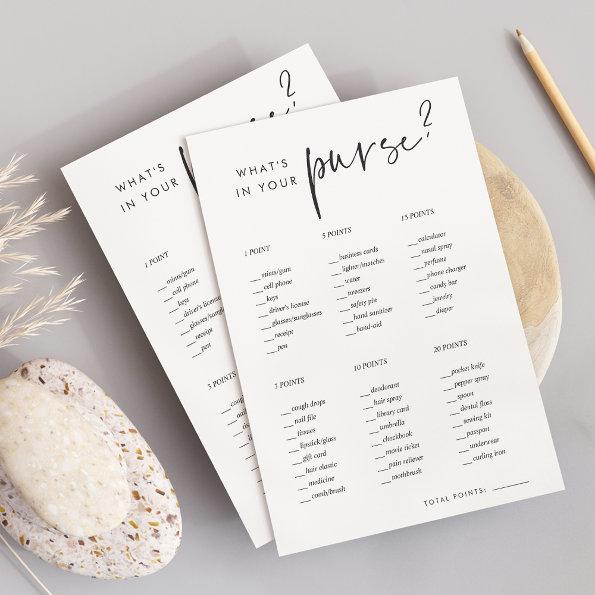 WHAT'S
IN YOUR
purse?
1 POINT
__mints/gum
__cell phone
__keys
__driver's license
__glasses/sunglasses
__receipt
__pen
5 POINTS
__business cards
__lighter/matches
__water
__tweezers
__safety pin
__hand sanitizer
__band-aid
15 POINTS
__calculator
__nasal spray
__perfume
__phone charger
__candy bar
__jewelry
__diaper
3 POINTS
__cough drops
__nail file
__tissues
__lipstick/gloss
__gift card
__hair elastic
__medicine
__comb/brush
10 POINTS
__deodorant
__hair spray
__library card
__umbrella
__checkbook
__movie ticket
__pain reliever
__toothbrush
20 POINTS
__pocket knife
__pepper spray
__spoon
__dental floss
__sewing kit
__passport
__underwear
__curling iron
TOTAL POINTS: ________
WHAT'S
IN YOUR
1 POINT
__mints/gum
__cell phone
__keys
__driver's license
__glasses/sung
__receipt
__pen
3 POINTS
__cough
__nail